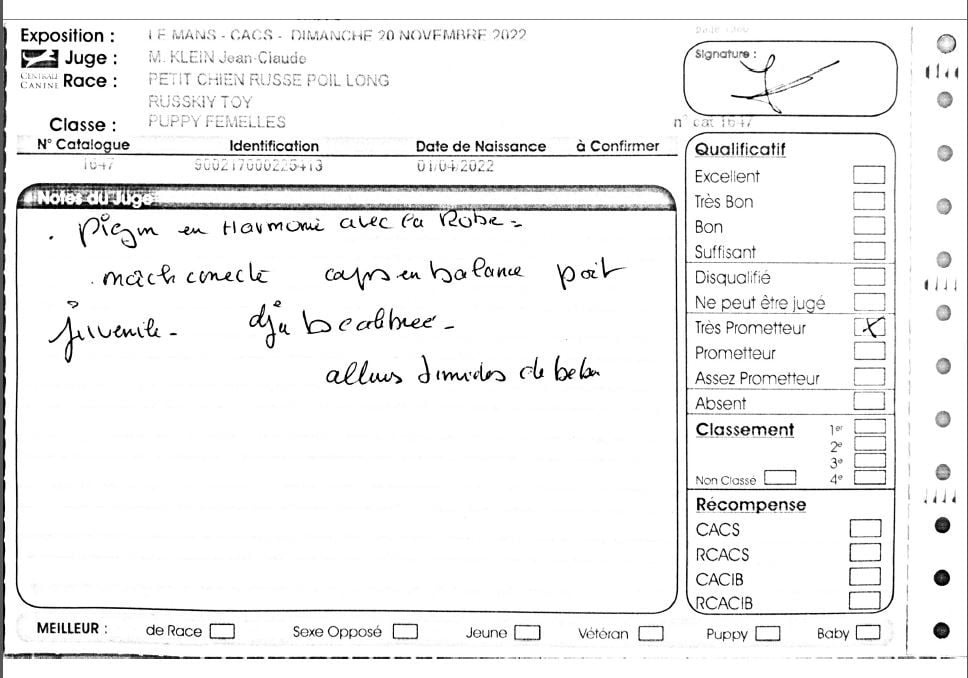 Exposition : LE MANS - CACS - DIMANCHE 20 NOVEMBRE 2022
Juge : M. KLEIN Jean-Claude
CENTRALE CANINE
Race : PETIT CHIEN RUSSE POIL LONG
RUSSKIY TOY
Classe : PUPPY FEMELLES
Signature :
n° cat 1647
N° Catalogue Identification Date de Naissance à Confirmer
1647 01/04/2022
Notes du Juge
. Pigm en Harmonie avec la Robe -
. mâch correcte corps en balance poil
juvenile - déjà
allures timides de bébé
Qualificatif
Excellent
Très Bon
Bon
Suffisant
Disqualifié
Ne peut être jugé
Très Prometteur X
Prometteur
Assez Prometteur
Absent
Classement 1er
2e
3e
Non Classé 4e
Récompense
CACS
RCACS
CACIB
RCACIB
MEILLEUR : de Race Sexe Opposé Jeune Vétéran Puppy Baby